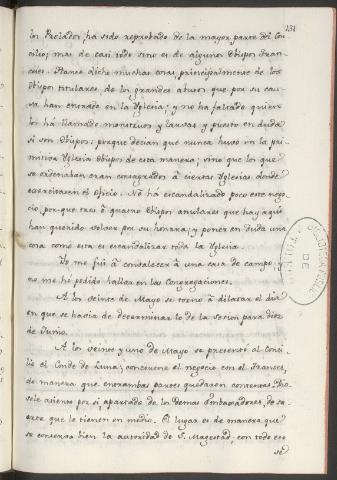 131
los Prelados, ha sido reprobado de la mayor parte del Con-
cilio; mas de casi todo sino es de algunos Obispos Fran-
ceses. Hanse dicho muchas cosas, principalmente de los
Obispos titulares, de los grandes abusos que por su cau-
sa han entrado en la Yglesia; y no ha faltado quien
los há llamado monstruos y larvas, y puesto en duda
si son Obispos; porque decian que nunca huvo en la pri-
mitiva Yglesia Obispos de esta manera; sino que los que
se ordenaban eran consagrados á ciertas Yglesias donde
exercitasen el Oficio. No há escandalizado poco este nego-
cio; porque tres ó quatro Obispos anulares que hay aqui
han querido volver por su honrra; y poner en duda una
cosa como esta es escandalizar toda la Yglesia.
Yo me fui á convalecer á una casa de campo; y
no me hé podido hallar en las Congregaciones.
A los veinte de Mayo se tornó á dilatar el dia
en que se havia de determinar lo de la Sesion para diez
de Junio.
A los veinte y uno de Mayo se presentó al Conci-
lio el Conde de Luna; concertose el negocio con el Frances,
de manera que entrambas partes quedaron contentas. Dio-
sele asiento por si apartado de los demas Embaxadores, de su-
erte que le tienen en medio. El lugar es de manera que
se conserva bien la autoridad de S. Magestad; con todo eso
se
DE